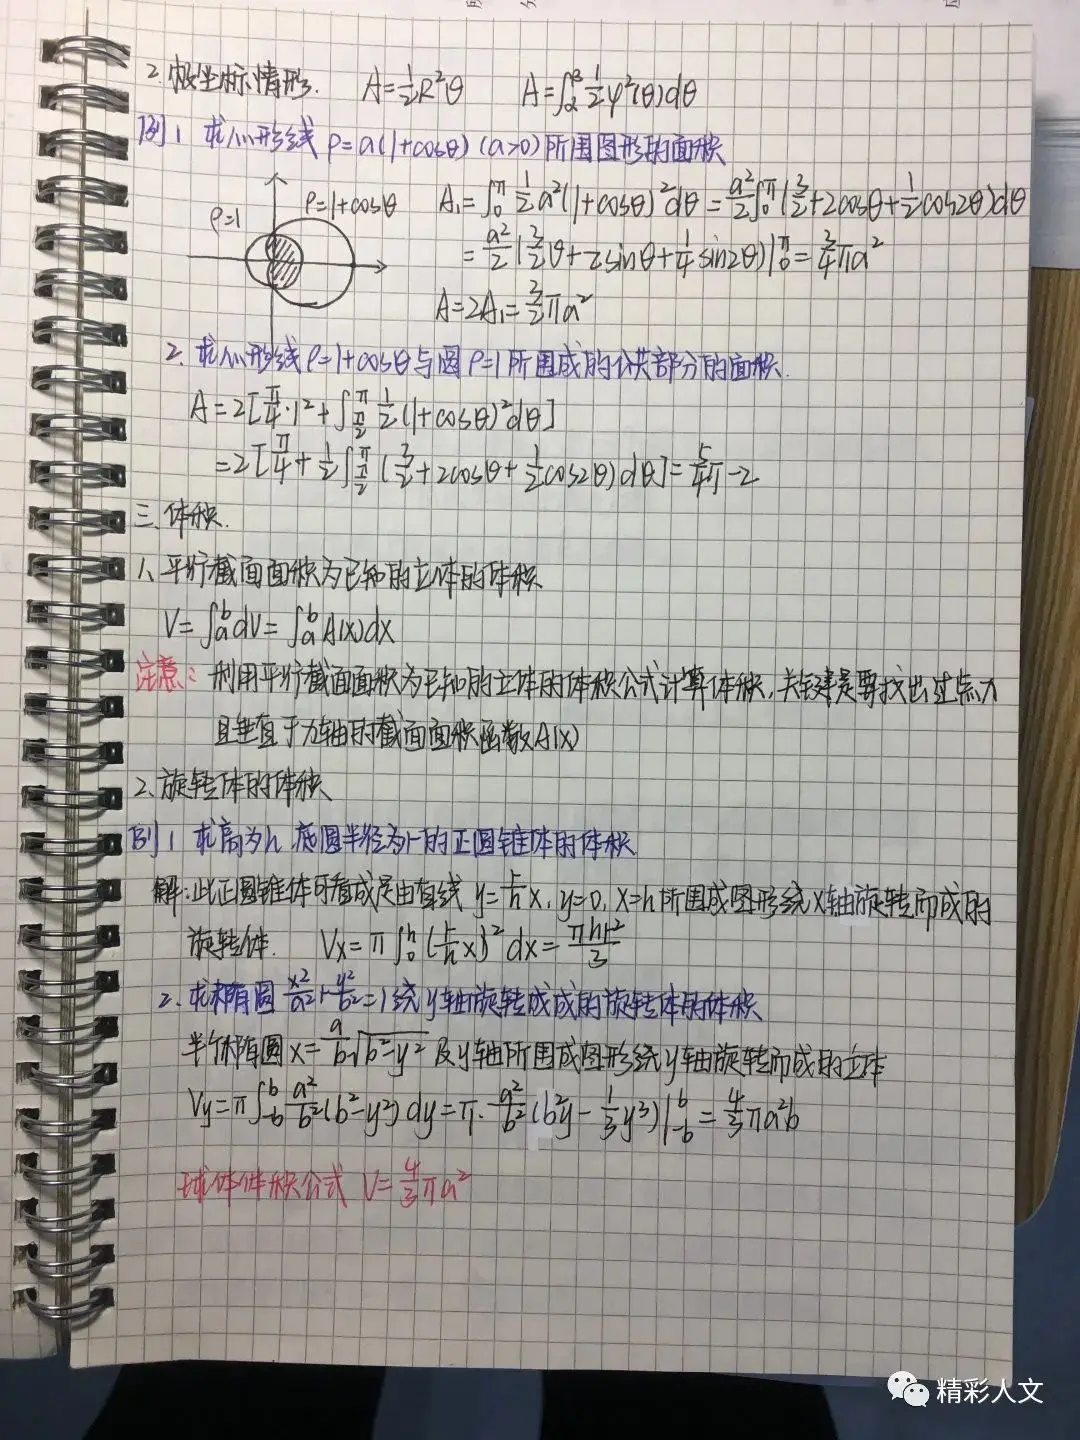 2.极坐标情形. A=½R²θ A=∫_α^β ½φ²(θ)dθ
例1 求心形线 ρ=a(1+cosθ) (a>0)所围图形的面积
ρ=1 ρ=1+cosθ A₁=∫₀^π ½a²(1+cosθ)²dθ=a²/2∫₀^π(3/2+2cosθ+½cos2θ)dθ
=a²/2(3/2θ+2sinθ+¼sin2θ)|₀^π=¾πa²
A=2A₁=3/2πa²
2.求心形线ρ=1+cosθ与圆ρ=1所围成的公共部分的面积.
A=2[π/4·1²+∫_{π/2}^π ½(1+cosθ)²dθ]
=2[π/4+½∫_{π/2}^π(3/2+2cosθ+½cos2θ)dθ]=5/4π-2
三.体积.
1、平行截面面积为已知的立体的体积
V=∫_a^b dV=∫_a^b A(x)dx
注意:利用平行截面面积为已知的立体的体积公式计算体积,关键是要找出过点x
且垂直于x轴的截面面积函数A(x)
2、旋转体的体积
例1 求高为h 底圆半径为r的正圆锥体的体积
解:此正圆锥体可看成是由直线 y=r/h x, y=0, x=h所围成图形绕x轴旋转而成的
旋转体. Vx=π∫₀^h(r/h x)²dx=πhr²/3
2.求椭圆 x²/a²+y²/b²=1绕y轴旋转成成的旋转体的体积
半个椭圆x=a/b√(b²-y²)及y轴所围成图形绕y轴旋转而成的立体
Vy=π∫_{-b}^b a²/b²(b²-y²)dy=π·a²/b²(b²y-⅓y³)|_{-b}^b=4/3πa²b
球体体积公式 V=4/3πa²
精彩人文